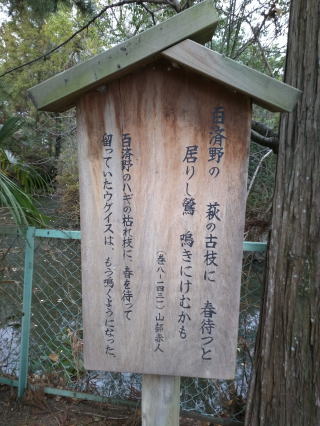 百済野の　萩の古枝に　春待つと
居りし鶯　鳴きにけむかも
（巻八－一四三一）山部赤人
百済野のハギの枯れ枝に、春を待って
留っていたウグイスは、もう鳴くようになった。